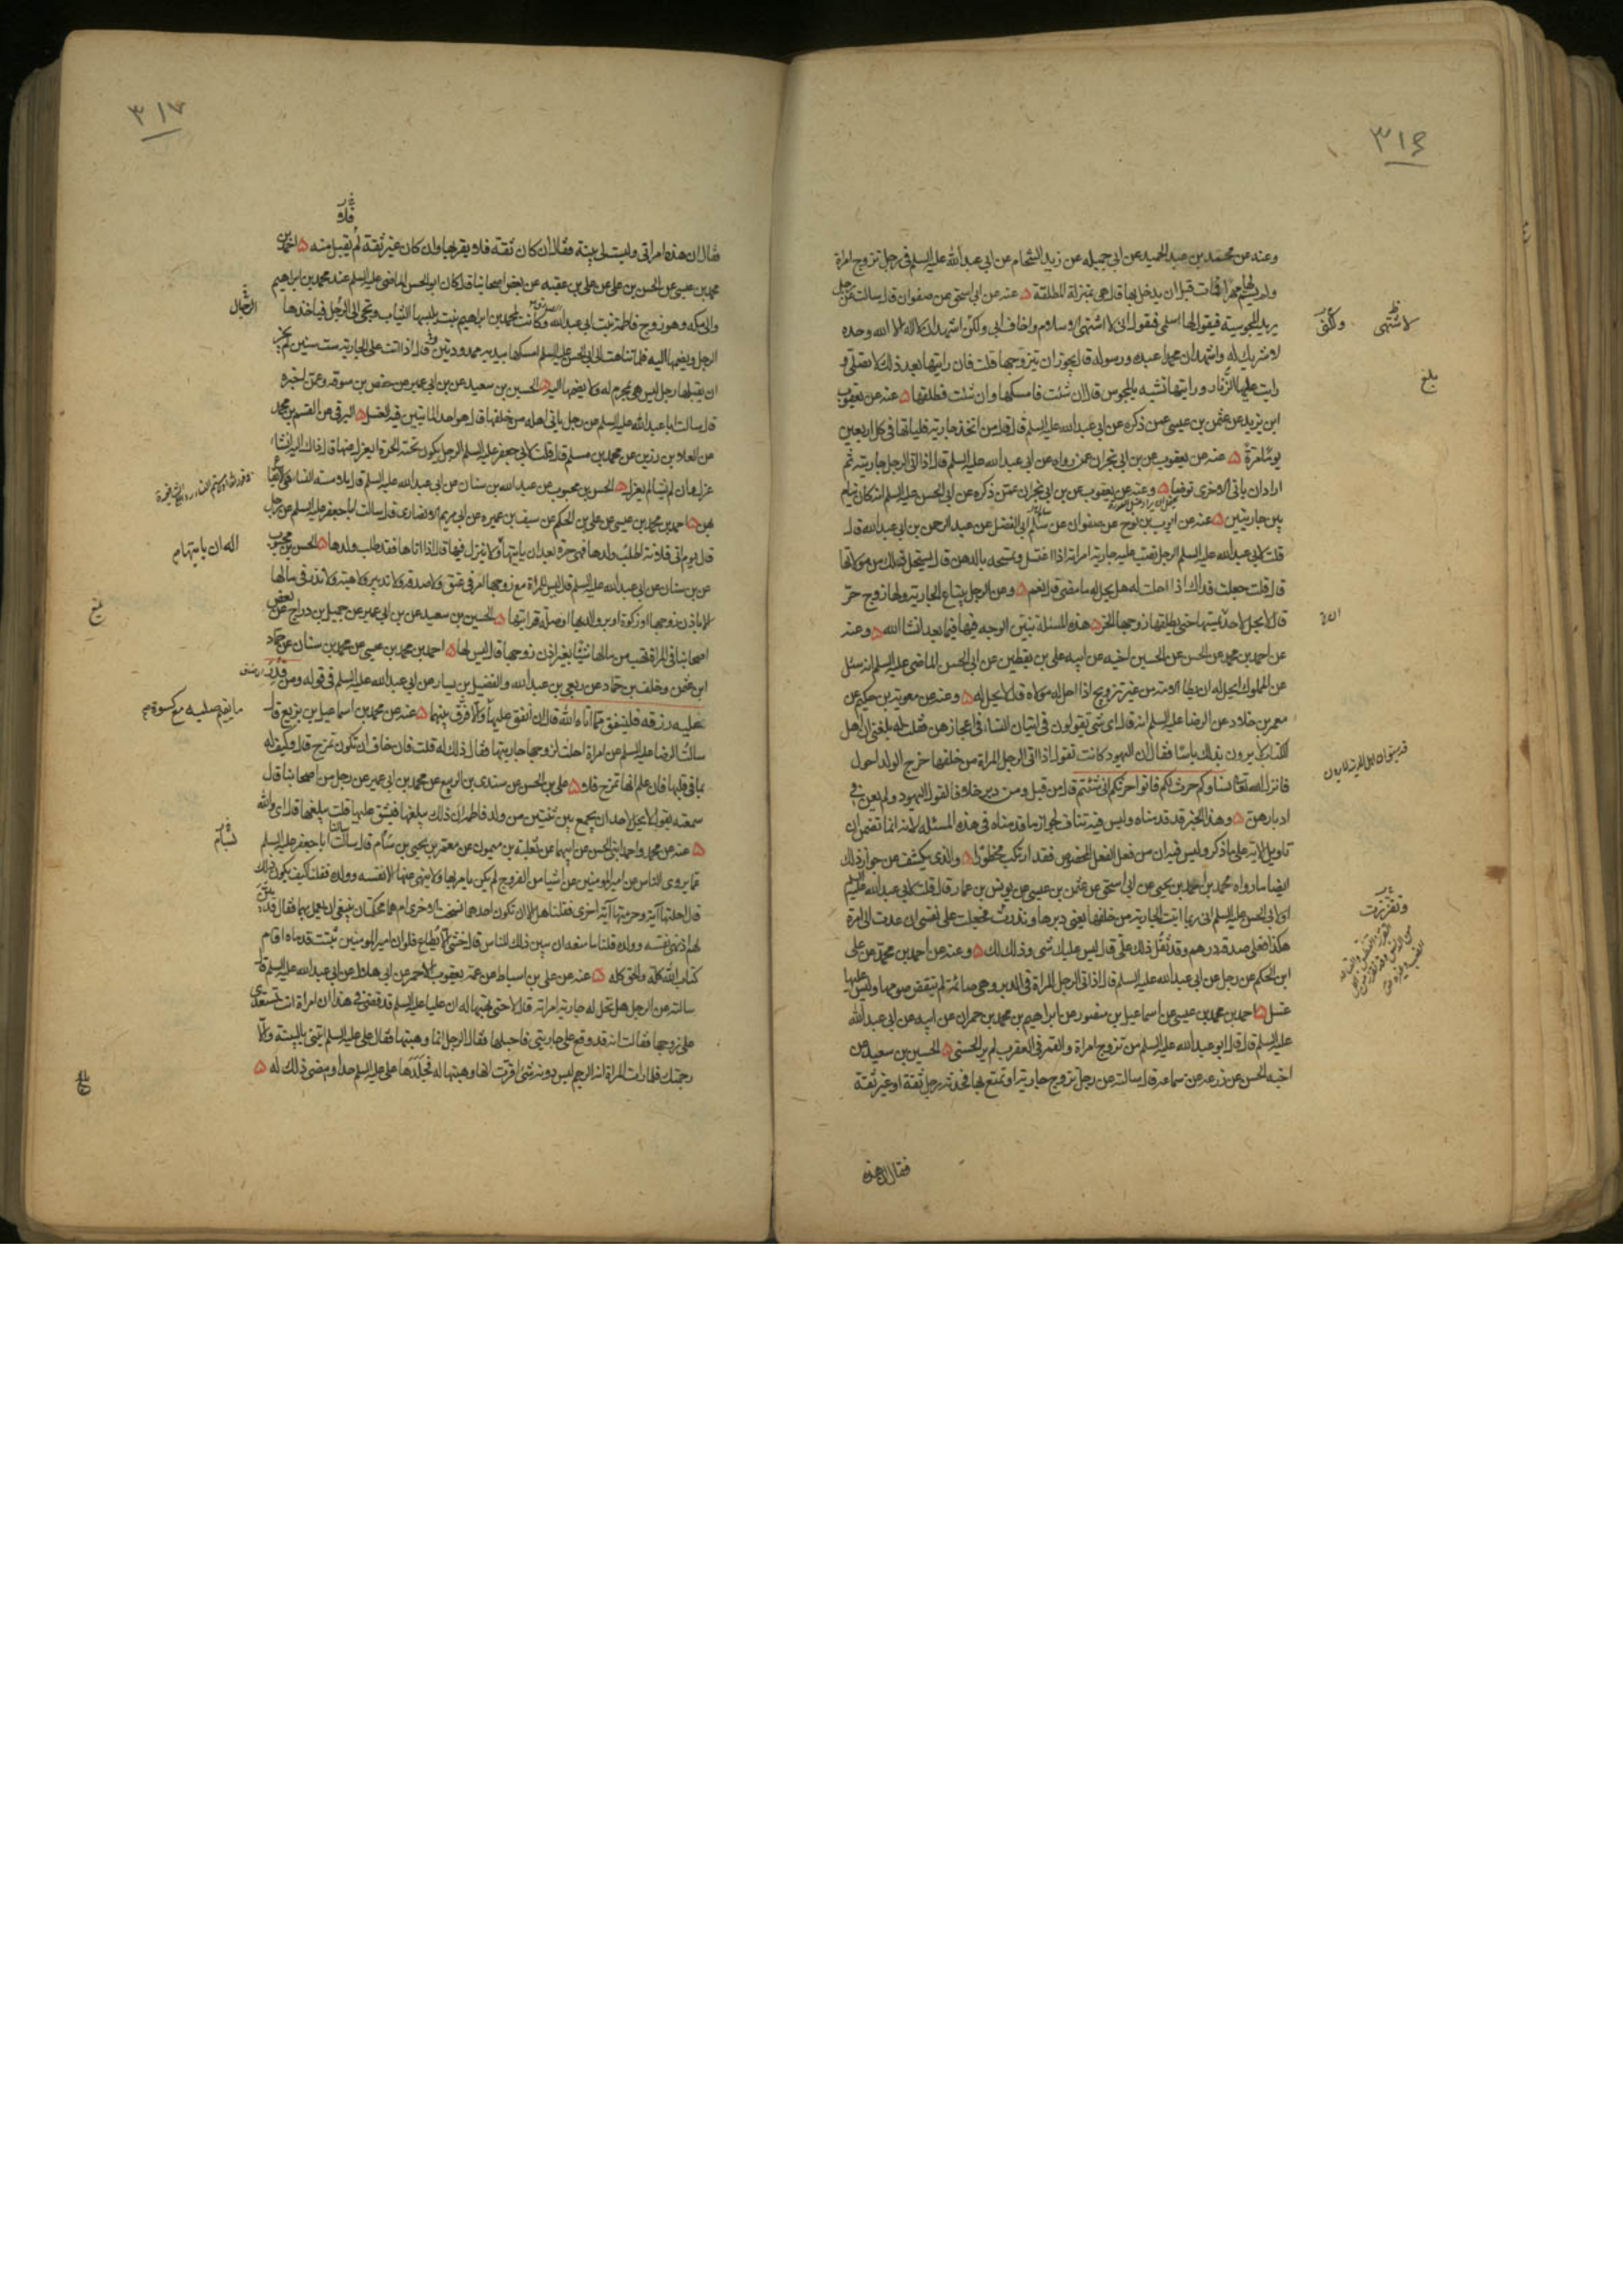 ٣١٦
وعنه عن محمد بن عبد الحميد عن ابي جميله عن زيد الشحام عن ابي عبد الله عليه السلم في رجل تزوج امراة
ولم يسم لها مهرا فمات قبل ان يدخل بها قال هي بمنزلة المطلقة ه عنه عن ابي اسحق عن صفوان قال سالته عن رجل
يريد المجوسية فيقول لها اسلمي فتقول اني لا اشتهي الاسلام واخاف ابي ولكني اشهد ان لا اله الا الله وحده
لا شريك له واشهد ان محمدا عبده ورسوله قال يجوز ان يتزوجها قلت فان رايتها بعد ذلك لا تصلي و
رايت عليها الزنار ورايتها تشبه بالمجوس قال ان شئت فامسكها وان شئت فطلقها ه عنه عن يعقوب
ابن يزيد عن عثمن بن عيسى عمن ذكره عن ابي عبد الله عليه السلم قال قال من اتخذ جارية فلياتها في كل اربعين
يوما مرة ه عنه عن يعقوب عن بن ابي نجران عمن رواه عن ابي عبد الله عليه السلم قال اذا اتى الرجل جاريته ثم
اراد ان ياتي الاخرى توضا ه وعنه عن يعقوب عن بن ابي نجران عمن ذكره عن ابي الحسن عليه السلم انه كان ينام
بين جاريتين ه عنه عن ايوب بن نوح عن صفوان عن سالم ابي الفضل عن عبد الرحمن بن ابي عبد الله قال
قلت لابي عبد الله عليه السلم الرجل تصب عليه جارية امراته اذا اغتسل وتمسحه بالدهن قال يستحل ذلك من مولاتها
قال قلت جعلت فداك اذا احلت له هل يحل له ما مضى قال نعم ه وعن الرجل يبتاع الجارية ولها زوج حر
قال لا يحل لاحد يمسها حتى يطلقها زوجها الحر ه هذه المسئلة نبين الوجه فيها فيما بعد انشا الله ه وعنه
عن احمد بن محمد عن الحسن عن الحسين اخيه عن ابيه علي بن يقطين عن ابي الحسن الماضي عليه السلم انه سئل
عن المملوك ايحل له ان يطا الامة من غير تزويج اذا احل له مولاه قال لا يحل له ه وعنه عن معوية بن حكيم عن
معمر بن خلاد عن الرضا عليه السلم انه قال اي شي تقولون في اتيان النساء في اعجازهن فقلت له بلغني ان اهل
الكتاب لا يرون بذلك باسا فقال ان اليهود كانت تقول اذا اتى الرجل المراة من خلفها خرج الولد احول
فانزل الله تعالى نساؤكم حرث لكم فاتوا حرثكم انى شئتم قال من قبل ومن دبر خلافا لقول اليهود ولم يعن في
ادبارهن ه وهذا الخبر قد قدمناه وليس فيه تناف لجواز ما قدمناه في هذه المسئلة لانه انما تضمن ان
تاويل الاية على ما ذكر وليس فيه ان من فعل الفعل المخصوص فقد ارتكب محظورا ه والذي يكشف عن جواز ذلك
ايضا ما رواه محمد بن احمد بن يحيى عن ابي اسحق عن عثمن بن عيسى عن يونس بن عمار قال قلت لابي عبد الله عليه السلم
او لابي الحسن عليه السلم اني ربما اتيت الجارية من خلفها يعني دبرها ونذرت فجعلت على نفسي ان عدت الى امراة
هكذا فعلي صدقة درهم وقد ثقل ذلك علي قال ليس عليك شي وذلك لك ه وعنه عن احمد بن محمد عن علي
ابن الحكم عن رجل عن ابي عبد الله عليه السلم قال اذا اتى الرجل المراة في الدبر وهي صائمة لم ينقض صومها وليس عليها
غسل ه احمد بن محمد بن عيسى عن اسماعيل بن منصور عن ابراهيم بن محمد بن حمران عن ابيه عن ابي عبد الله
عليه السلم قال قال ابو عبد الله عليه السلم من تزوج امراة والقمر في العقرب لم ير الحسنى ه الحسين بن سعيد عن
اخيه الحسن عن زرعه عن سماعه قال سالته عن رجل تزوج جارية او تمتع بها فحدثه رجل ثقة او غير ثقة
فقال ان هذه
لا تشتهى
ولكني
بلغ
وتقززت
٣١٧
فقال ان هذه امراتي وليست لي بينة فقال ان كان ثقة فلا يقربها وان كان غير ثقة لم يقبل منه ه احمد بن
محمد بن عيسى عن الحسن بن علي عن علي بن عقبه عن بعض اصحابنا قال كان ابو الحسن الماضي عليه السلم عند محمد بن ابراهيم
والي مكه وهو زوج فاطمة بنت ابي عبد الله وكانت لمحمد بن ابراهيم بنت يلبسها الثياب وتجي الى الرجل فياخذها
الرجل ويضمها اليه فلما تناهت الى ابي الحسن عليه السلم امسكها بيديه ممدودتين قال اذا اتت على الجارية ست سنين لم يجز
ان يقبلها رجل ليس هي بمحرم له ولا يضمها اليه ه الحسين بن سعيد عن بن ابي عمير عن حفص بن سوقه عمن اخبره
قال سالت ابا عبد الله عليه السلم عن رجل ياتي اهله من خلفها قال هو احد الماتيين فيه الغسل ه البرقي عن القسم بن محمد
عن العلا بن رزين عن محمد بن مسلم قال قلت لابي جعفر عليه السلم الرجل يكون تحته الحرة ايعزل عنها قال ذاك اليه ان شاء
عزل وان لم يشا لم يعزل ه الحسن بن محبوب عن عبد الله بن سنان عن ابي عبد الله عليه السلم قال ملامسة النساء هي الايقاع
بهن ه احمد بن محمد بن عيسى عن علي بن الحكم عن سيف بن عميره عن ابي مريم الانصاري قال سالت ابا جعفر عليه السلم عن رجل
قال يوم اتي فلانة اطلب ولدها فهي حرة بعد ان ياتيها ولا ينزل فيها قال اذا اتاها فقد طلب ولدها ه الحسن بن محبوب
عن بن سنان عن ابي عبد الله عليه السلم قال ليس للمراة مع زوجها امر في عتق ولا صدقة ولا تدبير ولا هبة ولا نذر في مالها
الا باذن زوجها او زكوة او بر والديها او صلة قرابتها ه الحسين بن سعيد عن بن ابي عمير عن جميل بن دراج عن بعض
اصحابنا في المراة تهب من مالها شيئا بغير اذن زوجها قال ليس لها ه احمد بن محمد بن عيسى عن محمد بن سنان عن حماد
ابن عثمن وخلف بن حماد عن ربعي بن عبد الله والفضيل بن يسار عن ابي عبد الله عليه السلم في قوله ومن قدر
عليه رزقه فلينفق مما اتاه الله قال ان انفق عليها والا فرق بينهما ه عنه عن محمد بن اسماعيل بن بزيع قال
سالت الرضا عليه السلم عن امراة احلت لزوجها جاريتها فقال ذلك له قلت فان خاف ان تكون تمزح قال وكيف له
بما في قلبها فان علم انها تمزح فلا ه علي بن الحسن عن سندي بن الربيع عن محمد بن ابي عمير عن رجل من اصحابنا قال
سمعته يقول لا يحل لاحد ان يجمع بين ثنتين من ولد فاطمة ان ذلك يبلغها فيشق عليها قلت يبلغها قال اي والله
ه عنه عن محمد واحمد ابني الحسن عن ابيهما عن ثعلبة بن ميمون عن معمر بن يحيى بن سام قال سالت ابا جعفر عليه السلم
عما يروي الناس عن امير المومنين عن اشيا من الفروج لم يكن يامر بها ولا ينهى عنها الا نفسه وولده فقلنا كيف يكون ذلك
قال احلتها آية وحرمتها آية اخرى فقلنا هل الا ان تكون احدهما نسخت الاخرى ام هما محكمتان ينبغي ان يعمل بهما فقال قد بين
لهم اذ نهى نفسه وولده قلنا ما منعه ان يبين ذلك للناس قال خشي الا يطاع فلو ان امير المومنين ثبتت قدماه اقام
كتاب الله كله والحق كله ه عنه عن علي بن اسباط عن عمه يعقوب الاحمر عن ابي هلال عن ابي عبد الله عليه السلم قال
سالته عن الرجل هل تحل له جارية امراته قال لا حتى تهبها له ان عليا عليه السلم قد قضى في هذا ان امراة اتت تستعدي
على زوجها فقالت انه قد وقع على جاريتي فاحبلها فقال الرجل انما وهبتها فقال علي عليه السلم ايتني بالبينة والا
رجمتك فلما رات المراة انه الرجم ليس دونه شي اقرت انها وهبتها له فجلدها علي عليه السلم حدا وامضى ذلك له ه
الرجال
بلغ